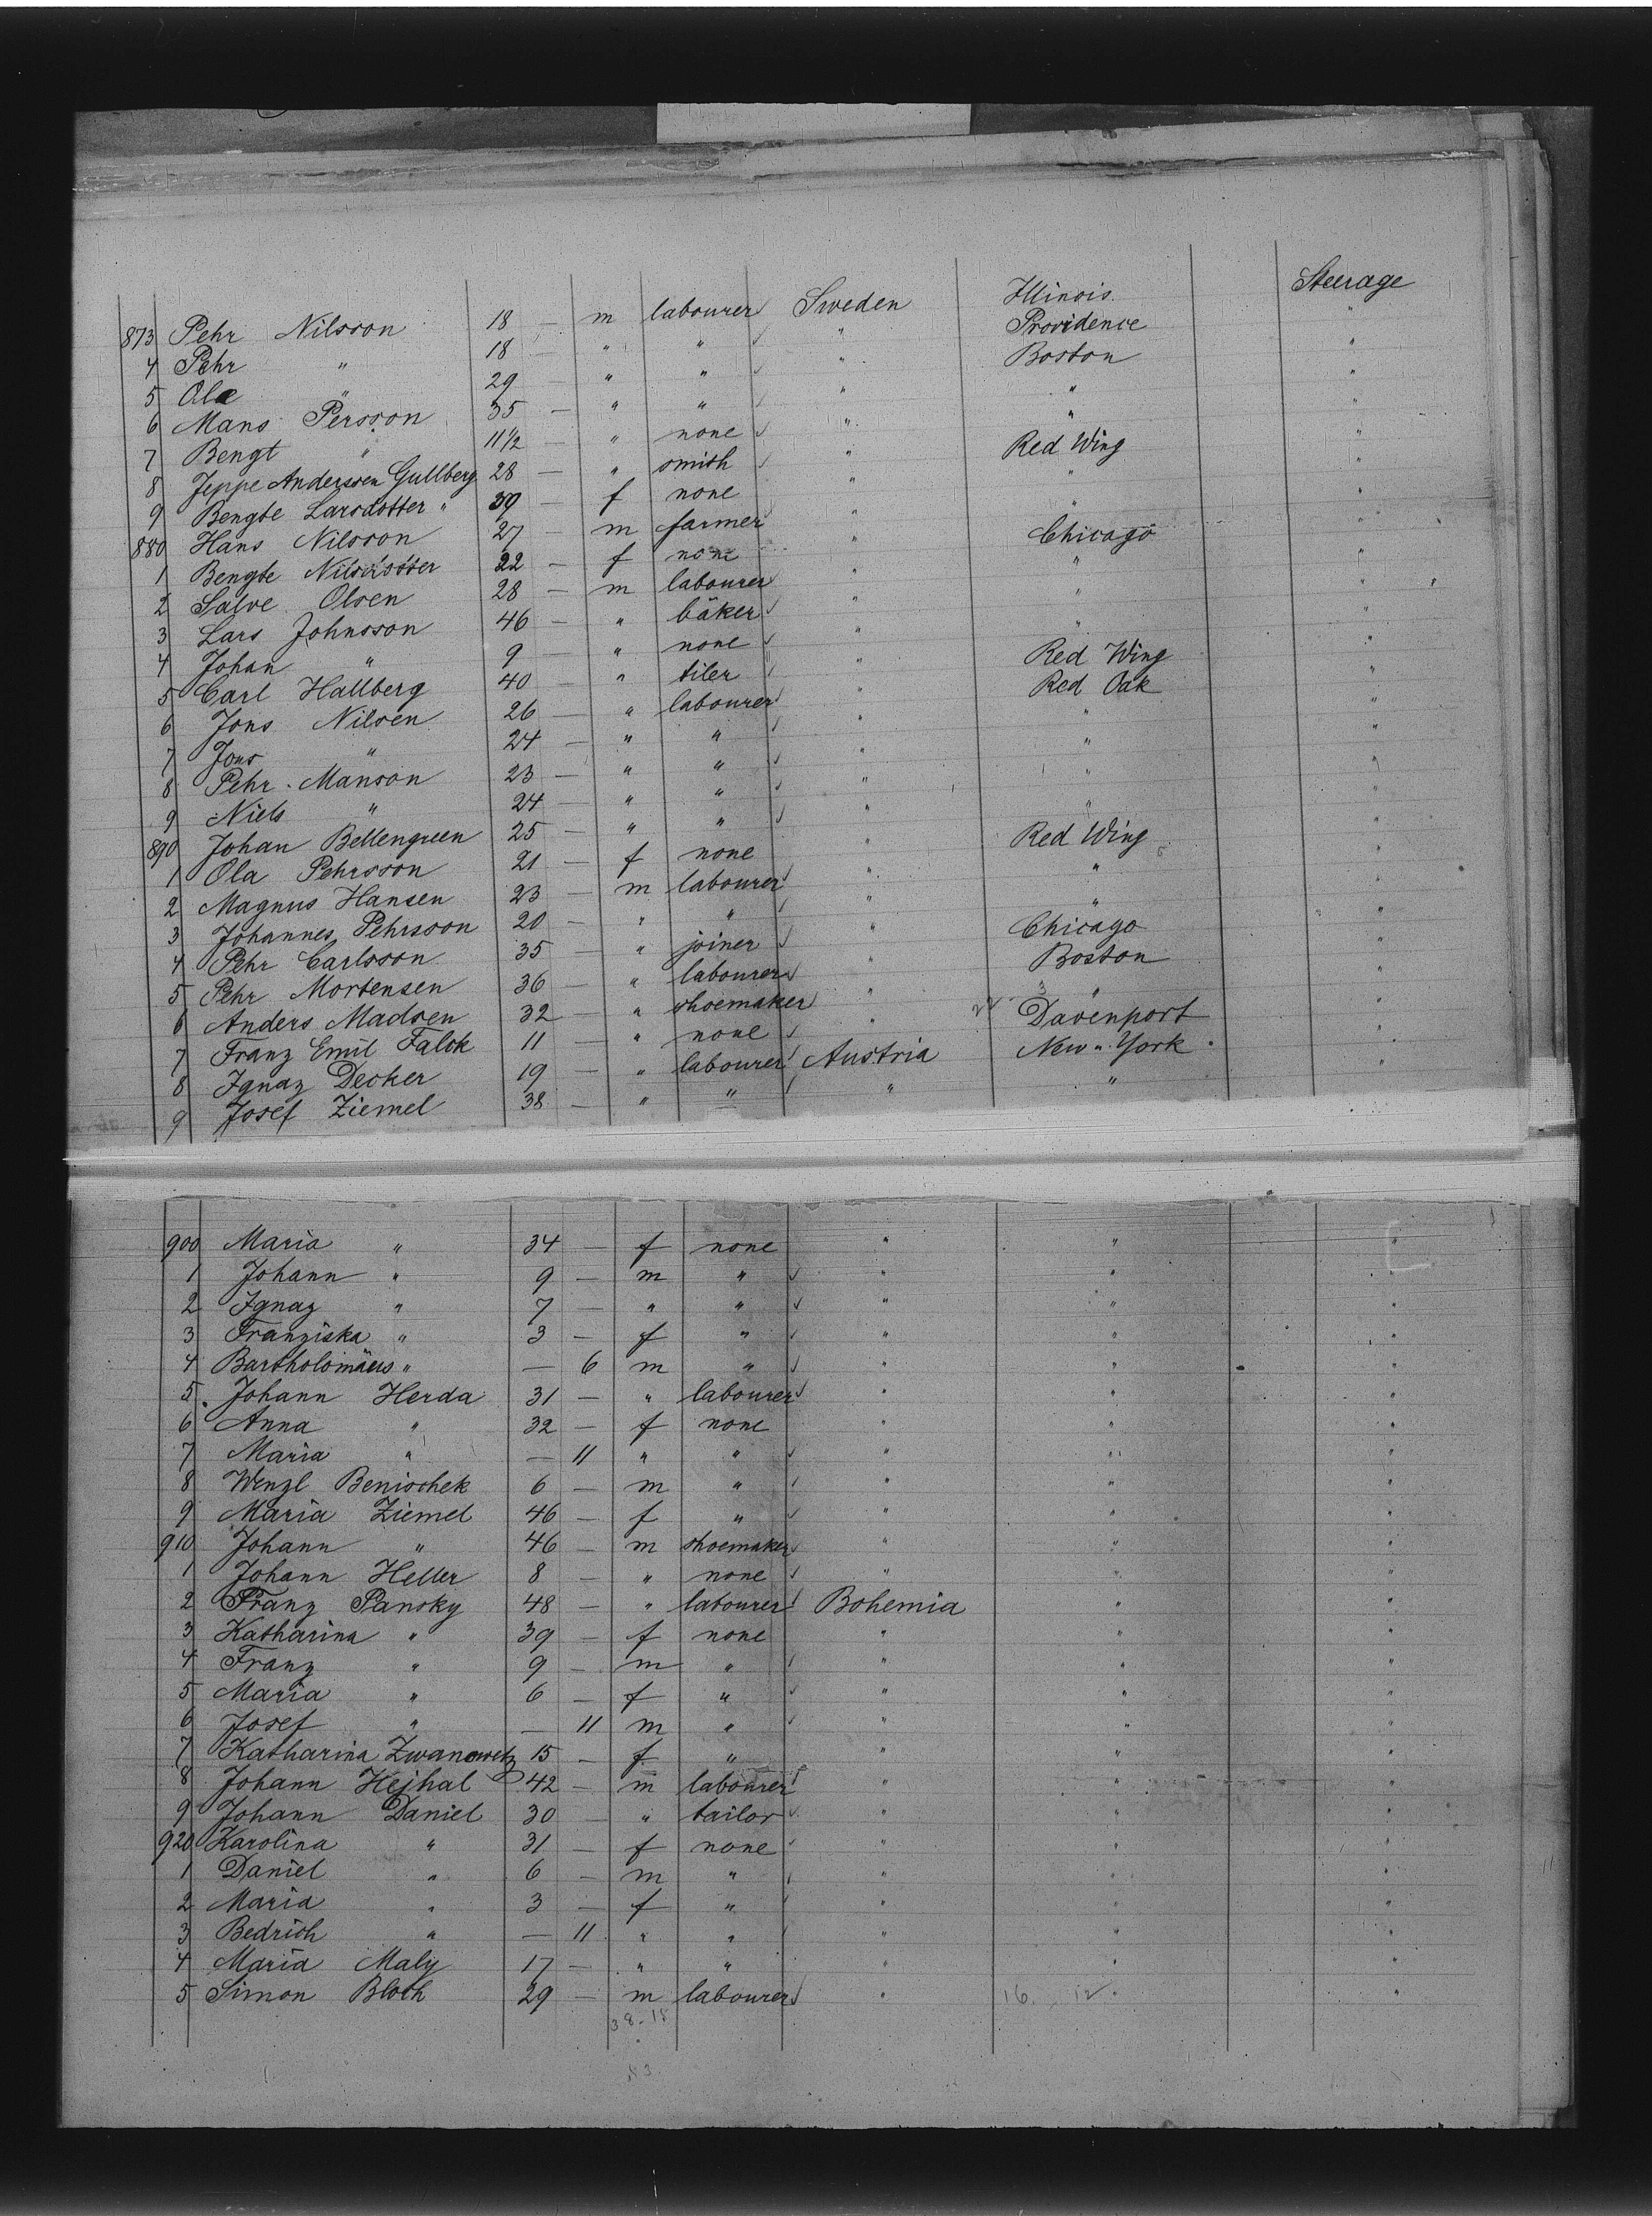 873 Pehr Nilsson 18 — m labourer Sweden Illinois. Steerage
4 Pehr " 18 — " " " Providence "
5 Ola " 29 — " " " Boston "
6 Mans Persson 35 — " " " " "
7 Bengt " 11½ — " none " " "
8 Jeppe Andersson Gullberg 28 — " smith " Red Wing "
9 Bengte Larsdotter " 39 — f none " " "
880 Hans Nilsson 27 — m farmer " " "
1 Bengte Nilsdotter 22 — f none " Chicago "
2 Salve Olsen 28 — m labourer " " "
3 Lars Johnsson 46 — " bäker " " "
4 Johan " 9 — " none " " "
5 Carl Hallberg 40 — " tiler " Red Wing "
6 Jons Nilsen 26 — " labourer " Red Oak "
7 Jons " 24 — " " " " "
8 Pehr Manson 23 — " " " " "
9 Niels " 24 — " " " " "
890 Johan Bellengreen 25 — " " " " "
1 Ola Pehrsson 21 — f none " Red Wing "
2 Magnus Hansen 23 — m labourer " " "
3 Johannes Pehrsson 20 — " " " " "
4 Pehr Carlsson 35 — " joiner " Chicago "
5 Pehr Mortensen 36 — " labourer " Boston "
6 Anders Madsen 32 — " shoemaker " " "
7 Franz Emil Falck 11 — " none " Davenport "
8 Ignaz Decker 19 — " labourer Austria New-York "
9 Josef Ziemel 38 — " " " " "
900 Maria " 34 — f none " " "
1 Johann " 9 — m " " " "
2 Ignaz " 7 — " " " " "
3 Franziska " 3 — f " " " "
4 Bartholomäus " — 6 m " " " "
5 Johann Herda 31 — " labourer " " "
6 Anna " 32 — f none " " "
7 Maria " — 11 " " " " "
8 Wenzl Benischek 6 — m " " " "
9 Maria Ziemel 46 — f " " " "
910 Johann " 46 — m shoemaker " " "
1 Johann Heller 8 — " none " " "
2 Franz Pansky 48 — " labourer Bohemia " "
3 Katharina " 39 — f none " " "
4 Franz " 9 — m " " " "
5 Maria " 6 — f " " " "
6 Josef " — 11 m " " " "
7 Katharina Zwanowetz 15 — f " " " "
8 Johann Hejhal 42 — m labourer " " "
9 Johann Daniel 30 — " tailor " " "
920 Karolina " 31 — f none " " "
1 Daniel " 6 — m " " " "
2 Maria " 3 — f " " " "
3 Bedrich " — 11 " " " " "
4 Maria Maly 17 — " " " " "
5 Simon Bloch 29 — m labourer " " "